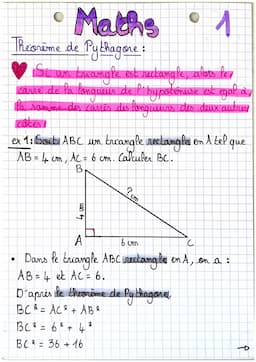 Maths 1
Théorème de Pythagore :
Si un triangle est rectangle, alors le
carré de la longueur de l'hypoténuse est égal à
la somme des carrés des longueurs des deux autres
côtés !
ex 1 : Soit ABC un triangle rectangle en A tel que
AB = 4 cm, AC = 6 cm. Calculer BC.
B
? cm
4 cm
A 6 cm C
• Dans le triangle ABC rectangle en A, on a :
AB = 4 et AC = 6.
D'après le théorème de Pythagore
BC² = AC² + AB²
BC² = 6² + 4²
BC² = 36 + 16